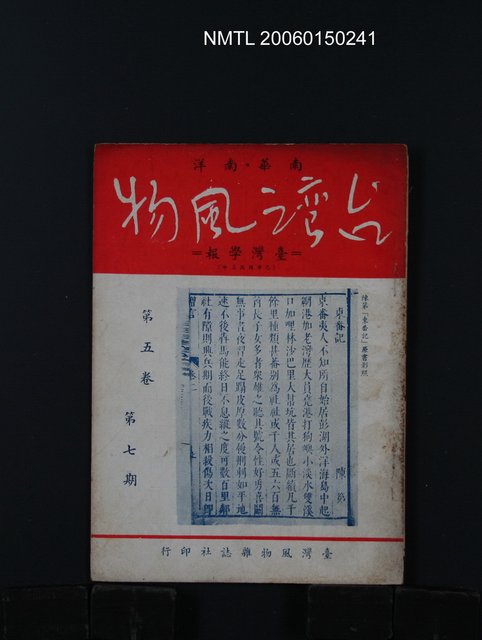 南華・南洋
台湾之風物
=臺灣學報=
陳第「東番記」
東番記
陳第
東番夷人不知所自始居彭湖外洋海島中起
網港加老灣歷大員堯港打狗嶼小淡水雙溪
口加哩林沙巴里大幫坑皆其居也斷續凡千
餘里種類甚蕃別為社社或千人或五六百無
酋長子女多者衆雄之聽其號令性好勇喜鬭
無事晝夜習走足蹋皮厚數分履荊刺如平地
速不後犇馬能終日不息縱之度可數百里鄰
社有隙則興兵期而後戰疾力相殺傷次日即
第五卷 第七期
臺灣風物雜誌社印行
NMTL 20060150241